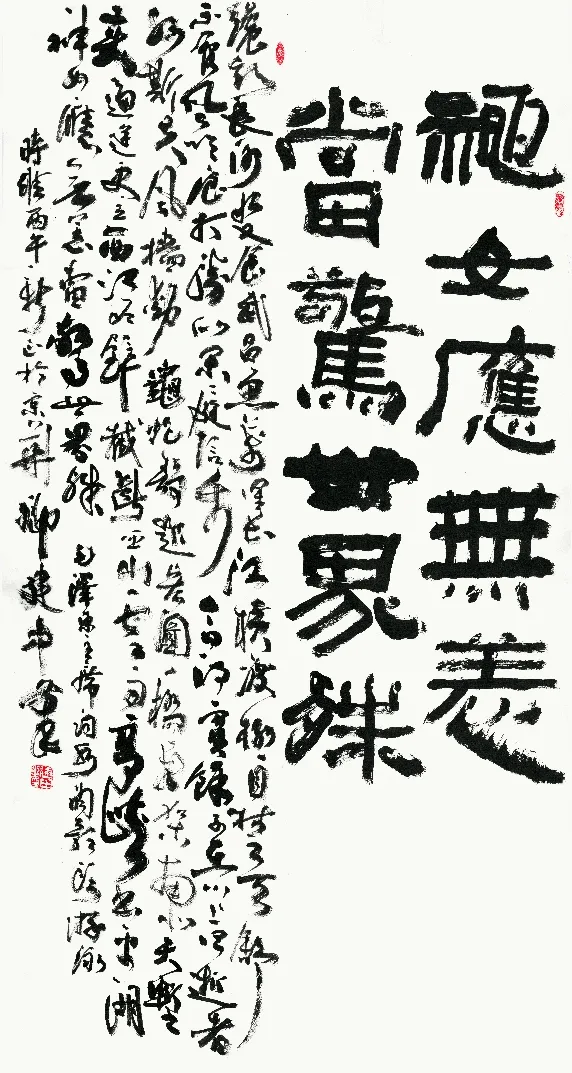 神女應無恙
當驚世界殊
纔飲長沙水又食武昌魚萬里長江橫渡極目楚天舒
不管風吹浪打勝似閑庭信步今日得寬餘子在川上曰逝者
如斯夫風檣動龜蛇靜起宏圖一橋飛架南北天塹
變通途更立西江石壁截斷巫山雲雨高峽出平湖
神女應無恙當驚世界殊 毛澤東主席詞水調歌頭游泳
時維丙午新正於京華 建中